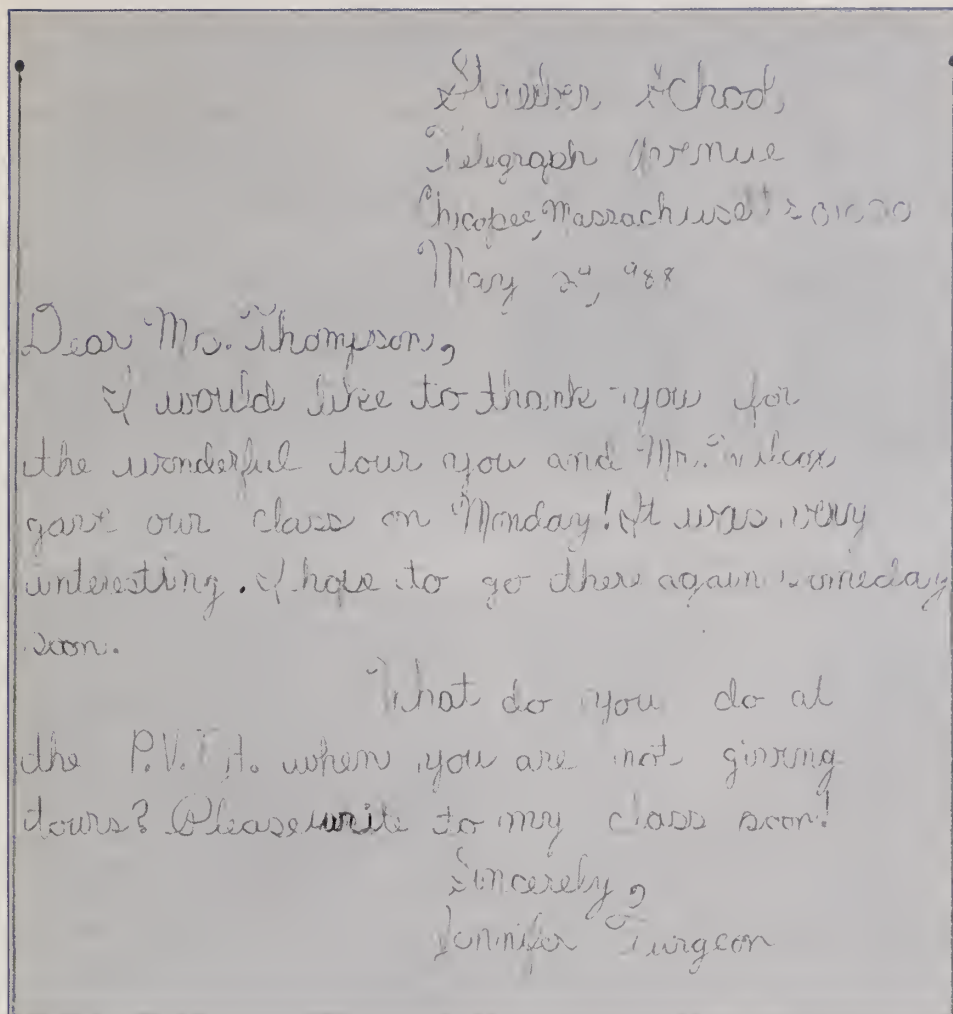 Streiber School,
Telegraph Avenue
Chicopee, Massachusetts 01020
May 24, 1988
Dear Mr. Thompson,
I would like to thank you for
the wonderful tour you and Mr. Wilcox
gave our class on Monday! It was very
interesting. I hope to go there again someday
soon.
What do you do at
the P.V.T.A. when you are not giving
tours? Please write to my class soon!
Sincerely,
Jennifer Turgeon